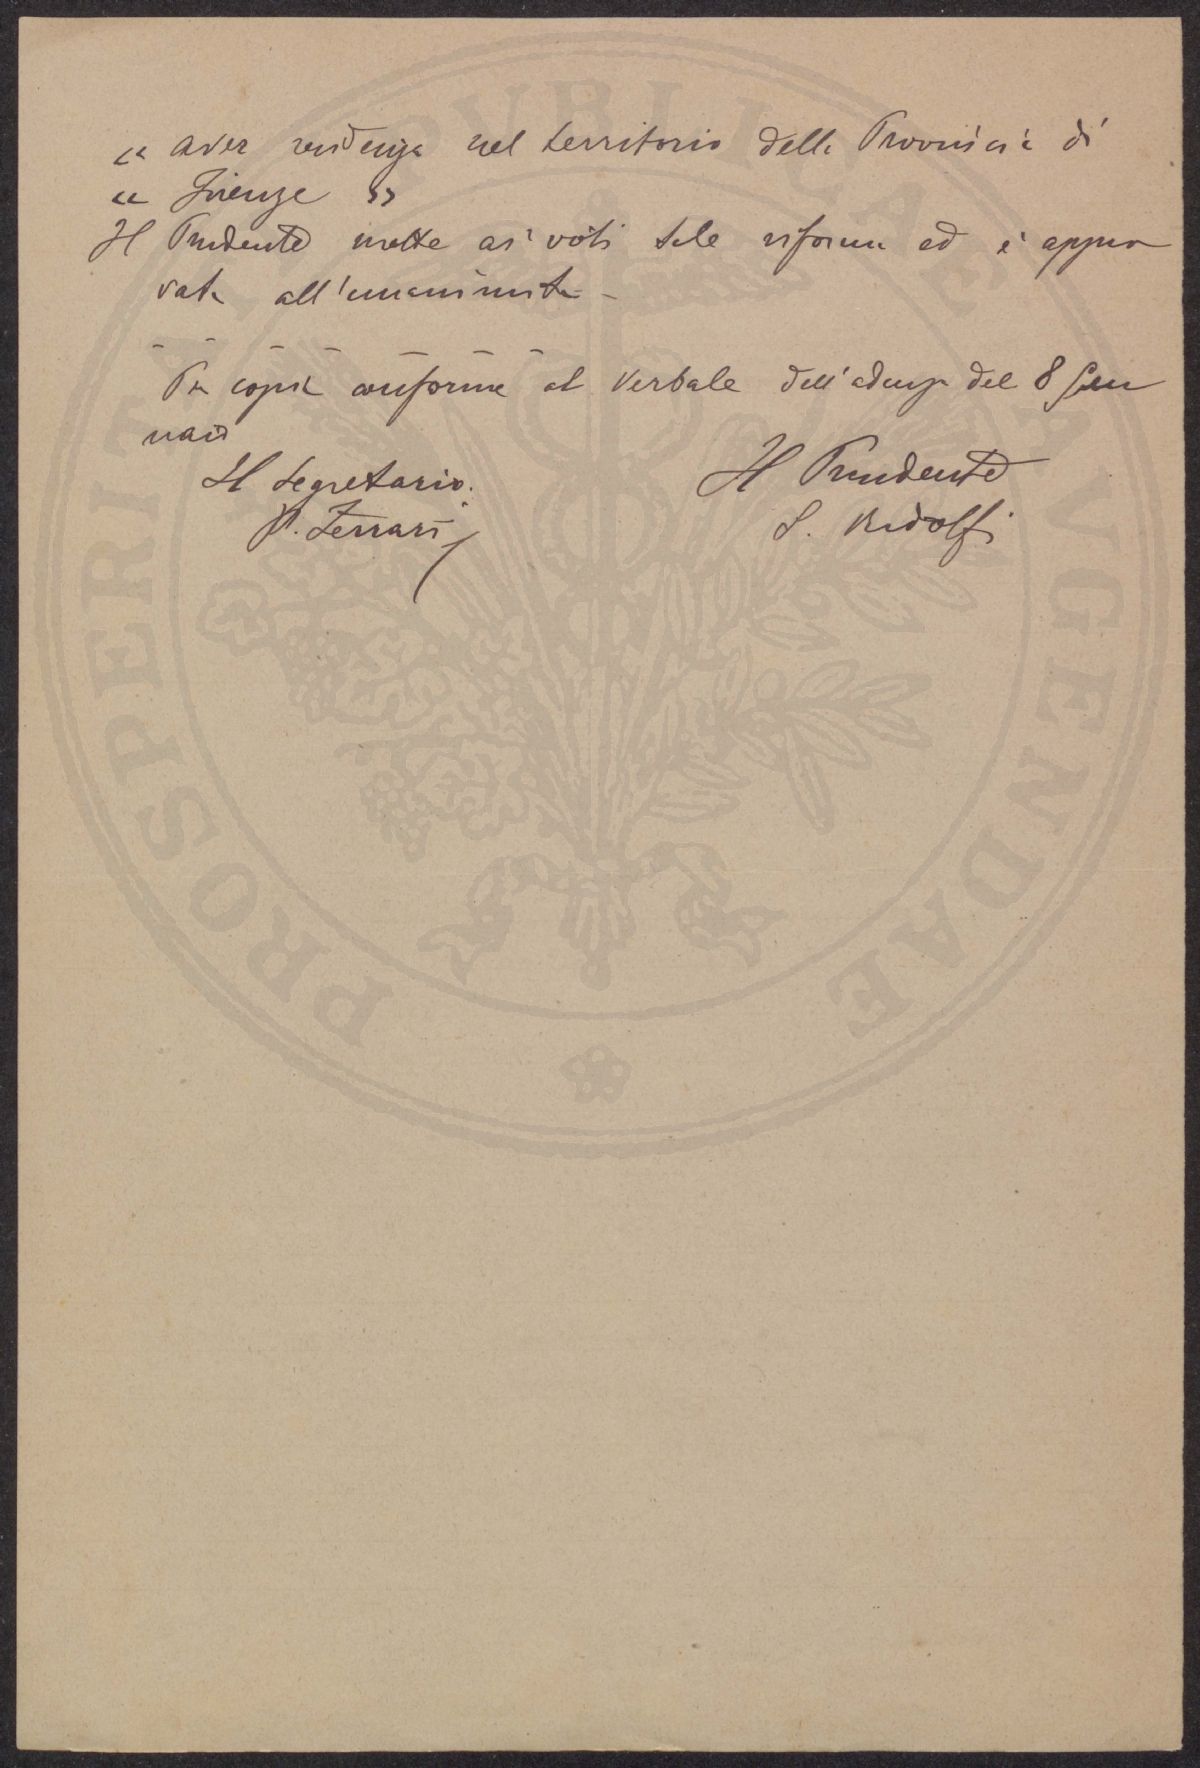 « aver residenza nel territorio della Provincia di
« Firenze »
Il Presidente mette ai voti tale riforma ed è appro
vata all'unanimità -
Per copia conforme al Verbale dell'adunza del 8 Gen
naio
Il Segretario. Il Presidente
P. Ferrari L. Ridolfi
PROSPERITATI PVBLICAE AVGENDAE